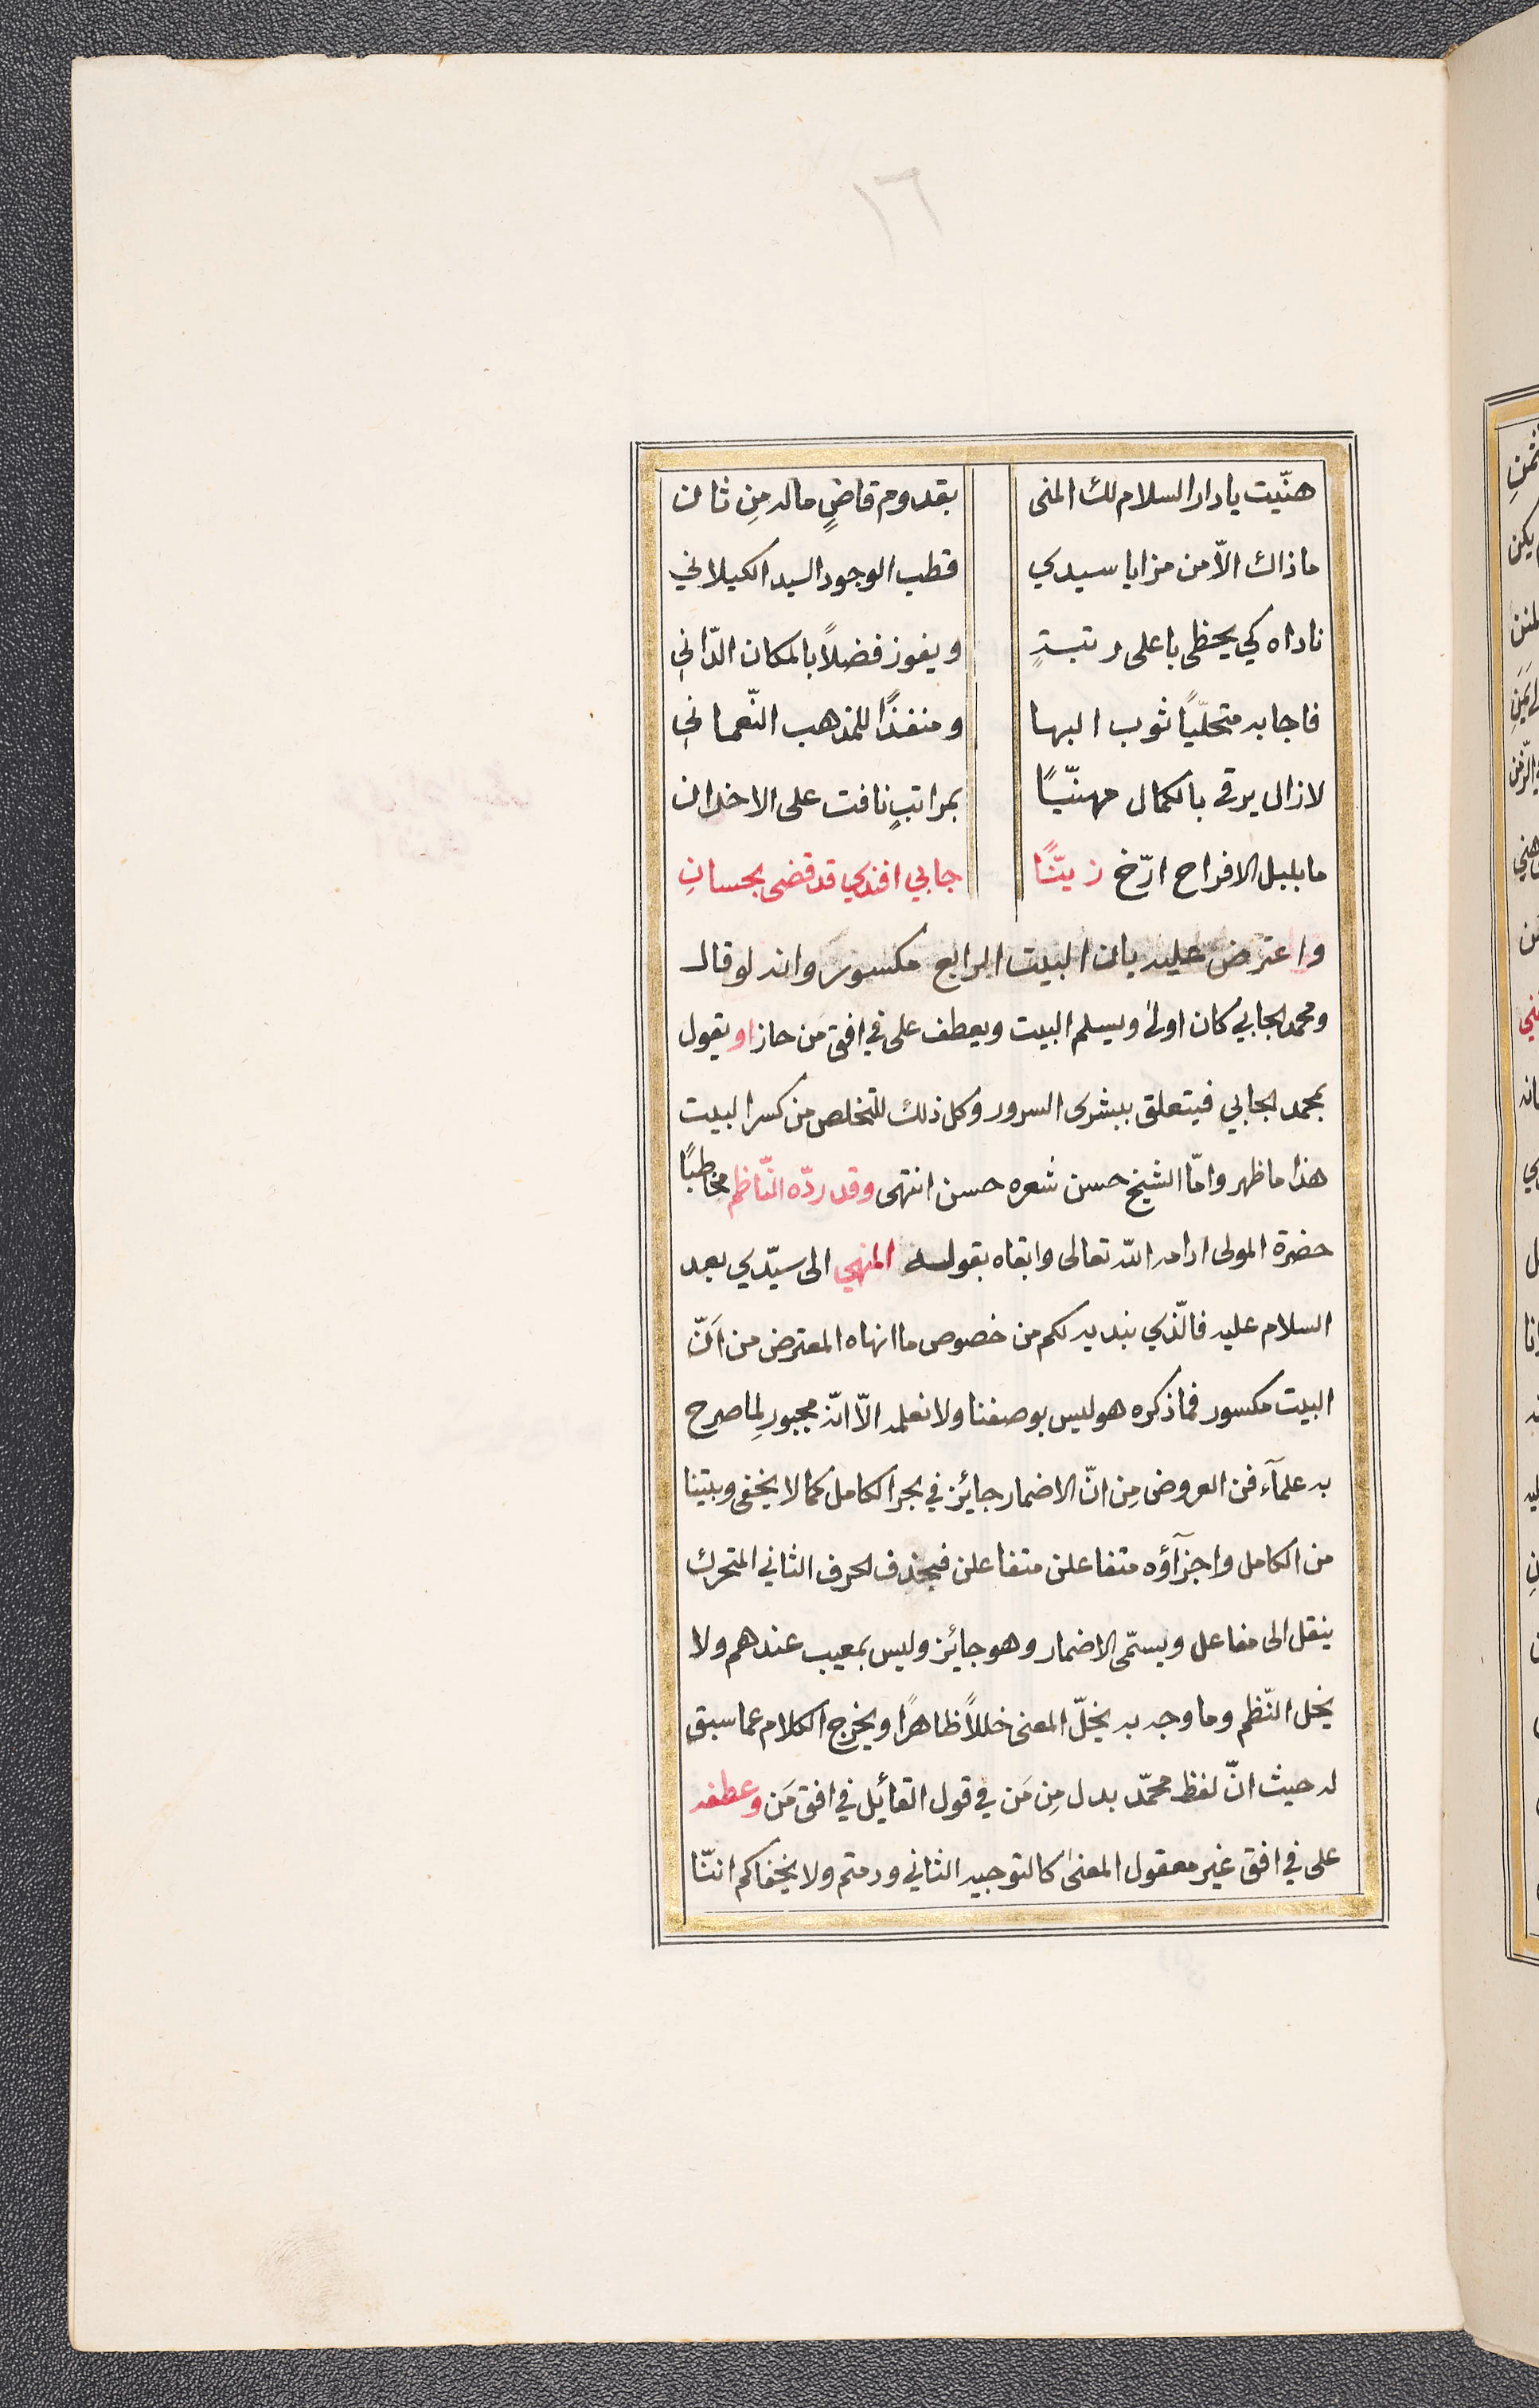 ١٦
هنّيت يا دار السلام لك المنى بقدوم قاضٍ ماله مِن ثان
ما ذاك الاّ من مزايا سيدي قطب الوجود السيد الكيلاني
ناداه كي يحظى باعلى رتبةٍ ويفوز فضلاً بالمكان الدّاني
فاجابه متحلّيًا ثوب البها ومنفذًا للمذهب النّعماني
لازال يرقى بالكمال مهنّيًا بمراتبٍ نافت على الاخدان
ما بلبل الافراح ارّخ زيّنًا جابي افندي قد قضى بحسانِ
واعترض عليه بان البيت الرابع مكسور وانه لو قال
ومحمد الجابي كان اولىٰ ويسلم البيت ويعطف على في افق مَن حاز او يقول
بمحمد الجابي فيتعلق ببشرى السرور وكل ذلك للتخلص من كسر البيت
هذا ما ظهر وامّا الشيخ حسن شعره حسن انتهى وقد ردّه النّاظم مخاطبًا
حضرة المولى ادامه الله تعالى وابقاه بقوله المنهي الى سيّدي بعد
السلام عليه فالّذي نبديه لكم من خصوص ما انهاه المعترض من اَنّ
البيت مكسور فما ذكره هو ليس بوصفنا ولا نعلمه الاّ انّه مجبور لِما صرح
به علمآء فن العروض مِن انّ الاضمار جائز في بحر الكامل كما لا يخفى وبيتنا
من الكامل واجزآؤه متفاعلن متفاعلن فيحذف الحرف الثاني المتحرك
ينقل الى مفاعل ويسمّى الاضمار وهو جائز وليس بمعيب عندهم ولا
يخل النّظم وما وجه به يخلّ المعنى خللاً ظاهرًا ويخرج الكلام عما سبق
له حيث انّ لفظ محمّد بدل مِن مَن في قول القائل في افق مَن وعطفه
على في افق غير معقول المعنىٰ كالتوجيه الثاني ودمتم ولا يخفاكم انّنا